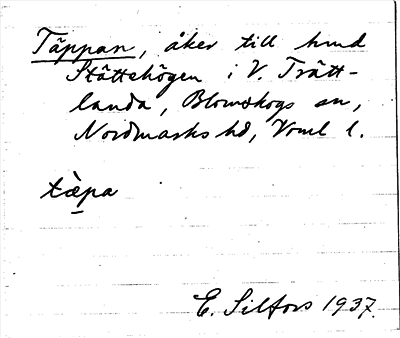 Täppan, åker till hmd
Stättehögen i V. Trätt-
landa, Blomskogs sn,
Nordmarks hd, Vrml l.
tæ̀pa
E. Silfors 1937.